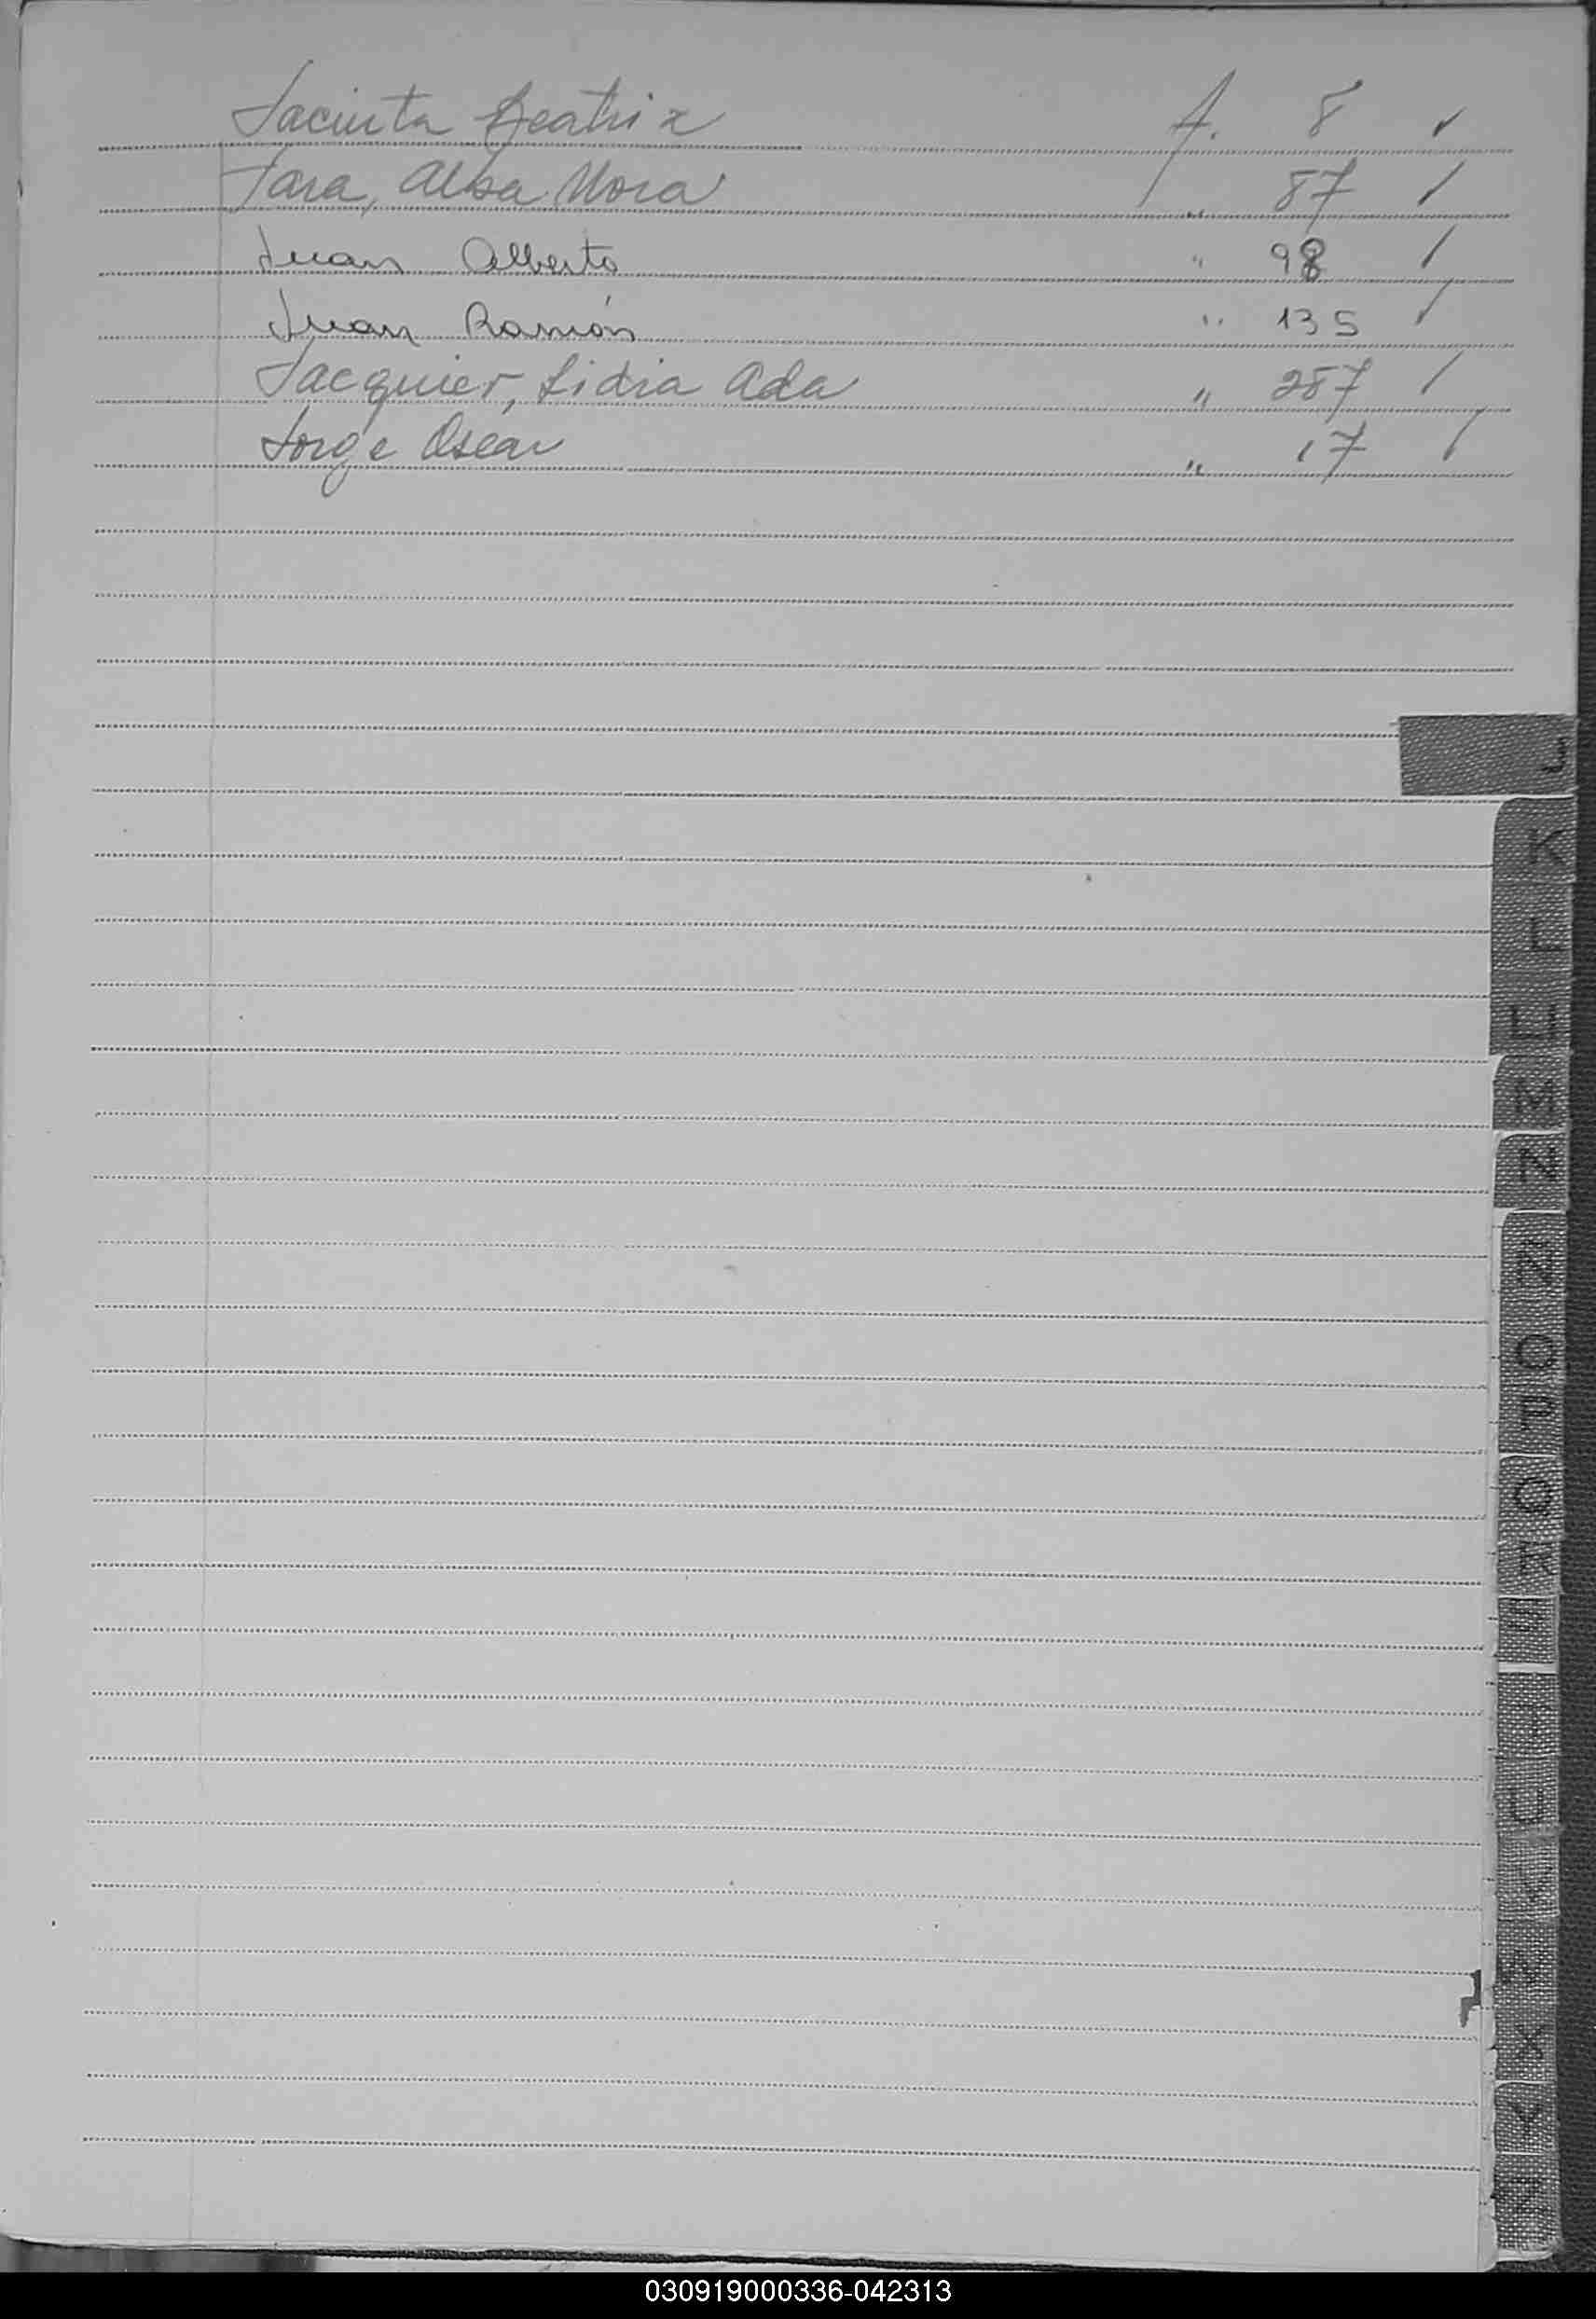 Jacinta Beatriz f. 8 ✓
Jara, Alba Nora " 87 /
Juan Alberto " 98 /
Juan Ramón " 135 /
Jacquier, Lidia Ada " 287 /
Jorge Oscar " 17 /
J
K
L
LL
M
N
Ñ
O
P
Q
R
S
T
U
V
W
X
Y
Z
030919000336-042313